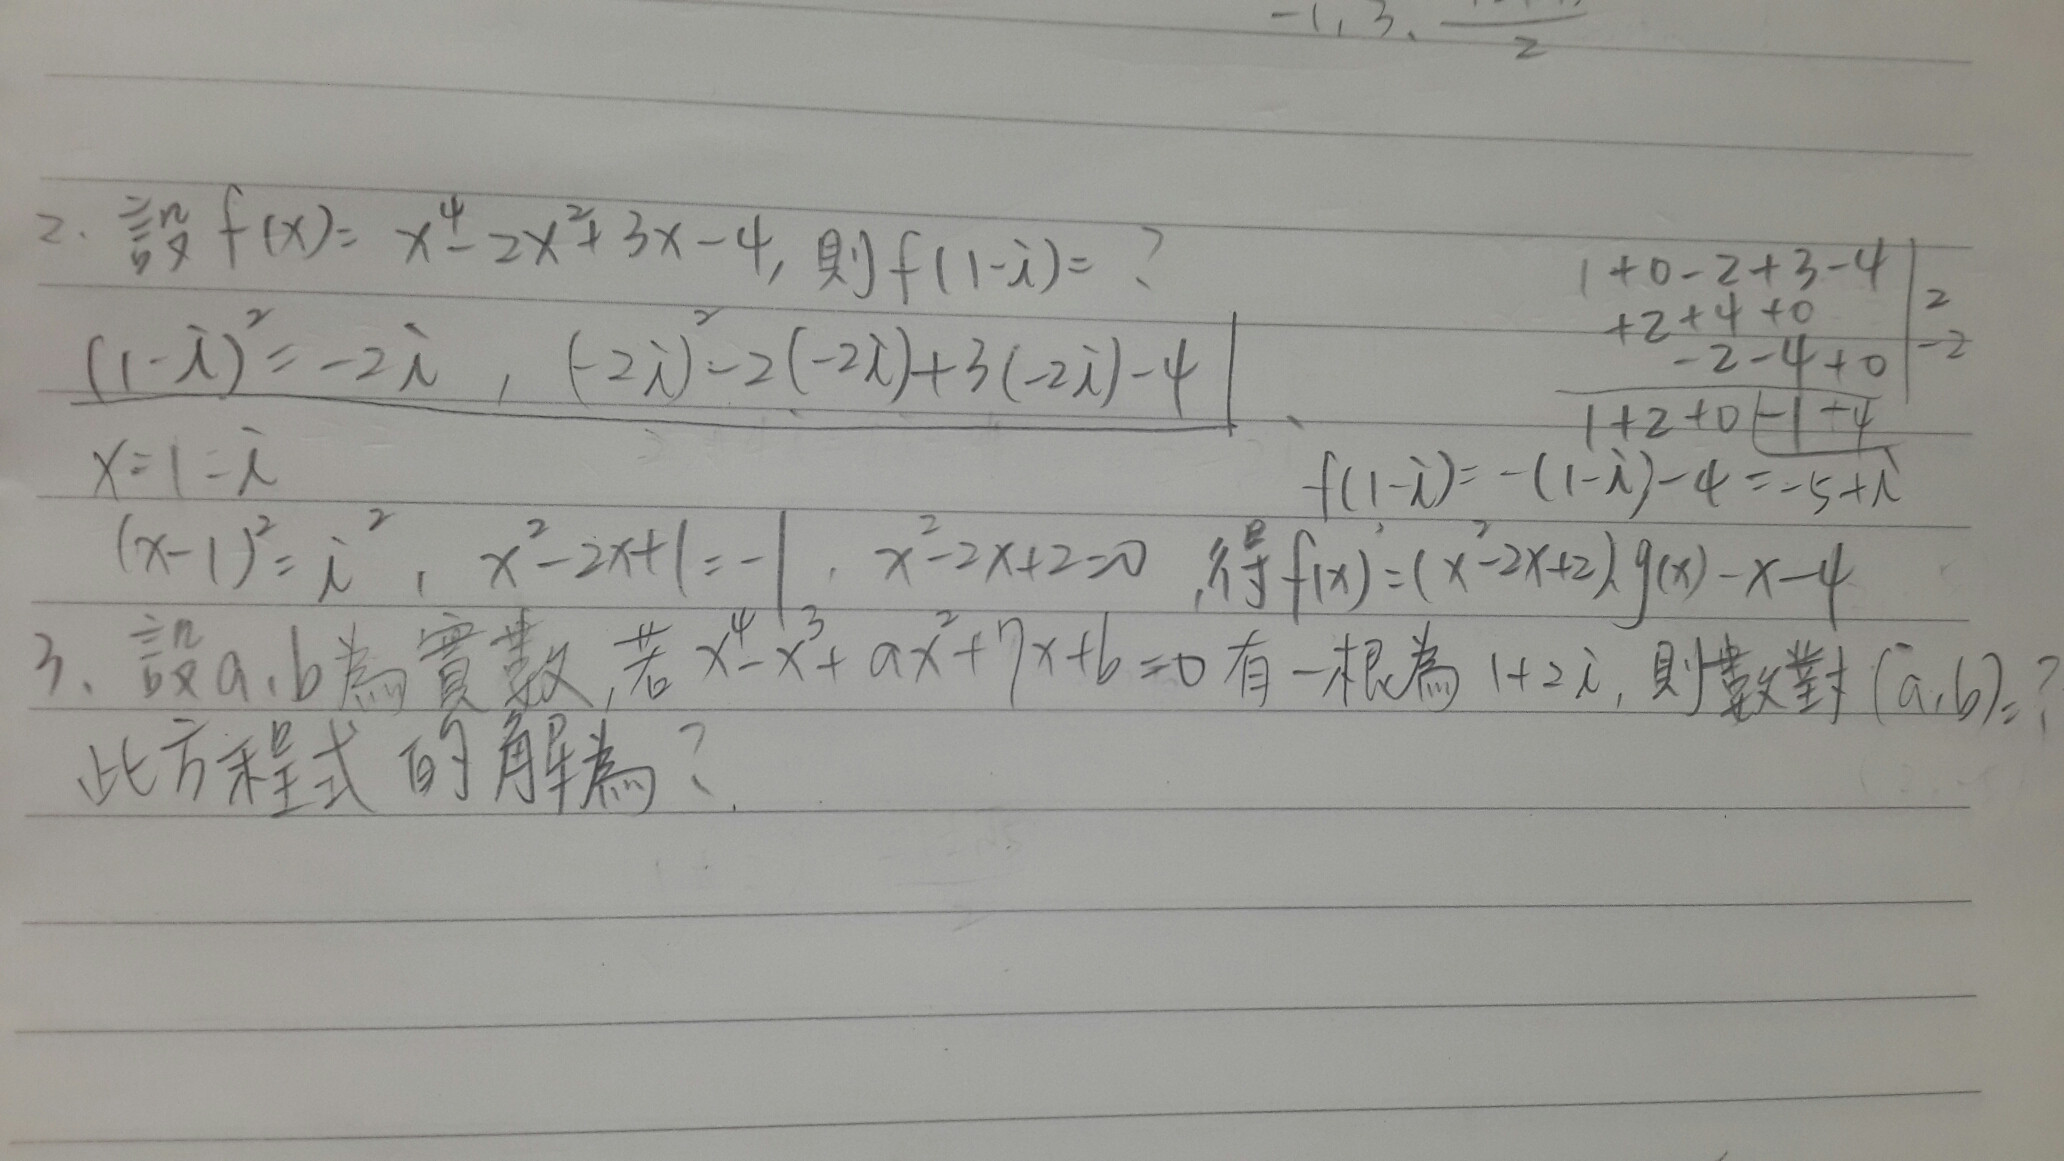 -1, 3、 2
2. 設 f(x)= x⁴-2x²+3x-4, 則f(1-i)=?
(1-i)²=-2i , (-2i)²-2(-2i)+3(-2i)-4
1+0-2+3-4 | 2
+2+4+0
-2-4+0 | -2
1+2+0 -1-4
x=1-i
f(1-i)=-(1-i)-4=-5+i
(x-1)²=i², x²-2x+1=-1, x²-2x+2=0, 得f(x)=(x²-2x+2)g(x)-x-4
3、設a、b為實數,若x⁴-x³+ax²+7x+b=0有一根為1+2i, 則數對(a,b)=?
此方程式的解為?